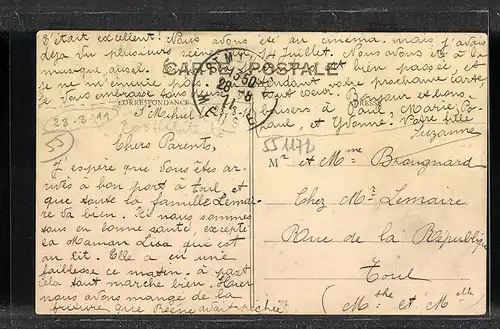 C'était excellent! Nous avons été au cinéma, mais j'avais
déjà vu plusieurs scènes au 14 Juillet. Nous avons été à la
musique aussi. et bien passée et
je ne m'ennuie p attendant votre prochaine carte
je vous embrasse tous Bonjour et bons
CARTE POSTALE
CORRESPONDANCE
St Mihiel baisers à Paul, Marie,
Paul, et Yvonne. Votre fille
Suzanne
23-8-11
55
551172
Chers Parents,
J'espère que vous êtes ar-
rivés à bon port à Toul, et
que toute la famille Lemai-
re va bien. Ici nous sommes
tous en bonne santé, excepté
la Maman Lisa qui est
au lit. Elle a eu une
faiblesse ce matin. à part
cela tout marche bien. Hier
nous avons mangé de la
friture que Reine avait pêchée
Mr et Mme Brougnard
Chez Mr Lemaire
Rue de la République
Toul
(Mthe et Melle)